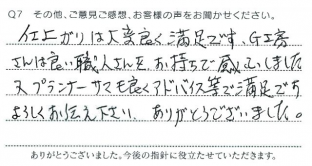 Q7 その他、ご意見ご感想、お客様の声をお聞かせください。
仕上がりは大変良く満足です。G工房
さんは良い職人さんを、お持ちで感心していました
又プランナーサマも良くアドバイス等で満足です
よろしくお伝え下さい。ありがとうございました。
ありがとうございました。今後の指針に役立たせていただきます。